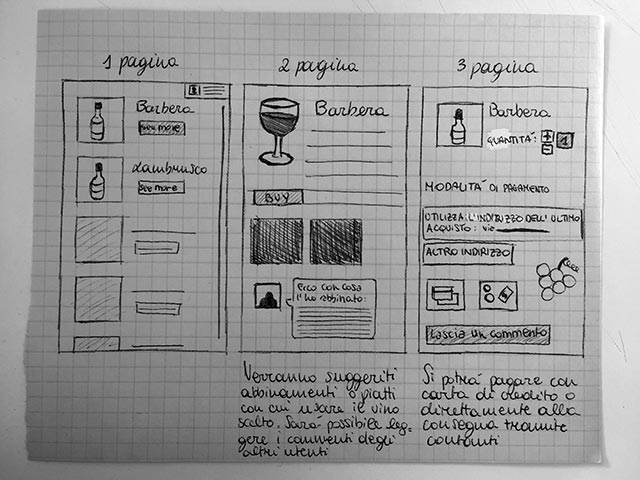 1 pagina
Barbera
see more
Lambrusco
see more
2 pagina
Barbera
BUY
Ecco con cosa
l'ho abbinato:
Verranno suggeriti
abbinamenti o piatti
con cui usare il vino
scelto. Sarà possibile leg-
gere i commenti degli
altri utenti
3 pagina
Barbera
QUANTITÀ: + 1
-
MODALITÀ DI PAGAMENTO
UTILIZZA L'INDIRIZZO DELL'ULTIMO
ACQUISTO: via
ALTRO INDIRIZZO
Lascia un commento
Si potrà pagare con
carta di credito o
direttamente alla
consegna tramite
contanti